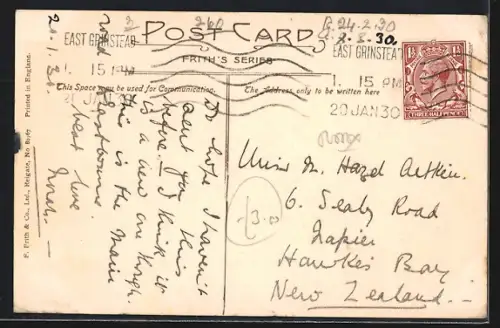 2 260 R. 24-2-30
A. 2. 8. 30.
POST CARD
FRITH'S SERIES
EAST GRINSTEAD
1. 15 PM
20 JAN 30
EAST GRINSTEAD
1. 15 PM
20 JAN 30
THREE HALF PENCE
This Space may be used for Communication.
The Address only to be written here
F. Frith & Co., Ltd., Reigate, No 83 Printed in England.
20.1.30.
Dr. hope I haven't
sent you this
before. - I think it
is a new one though.
This is the Main
Eastbourne
road
Best love
Norah. -
Miss M. Hazel Aitken.
6. Sealy Road
Napier
Hawkes Bay
New Zealand. -
3.00